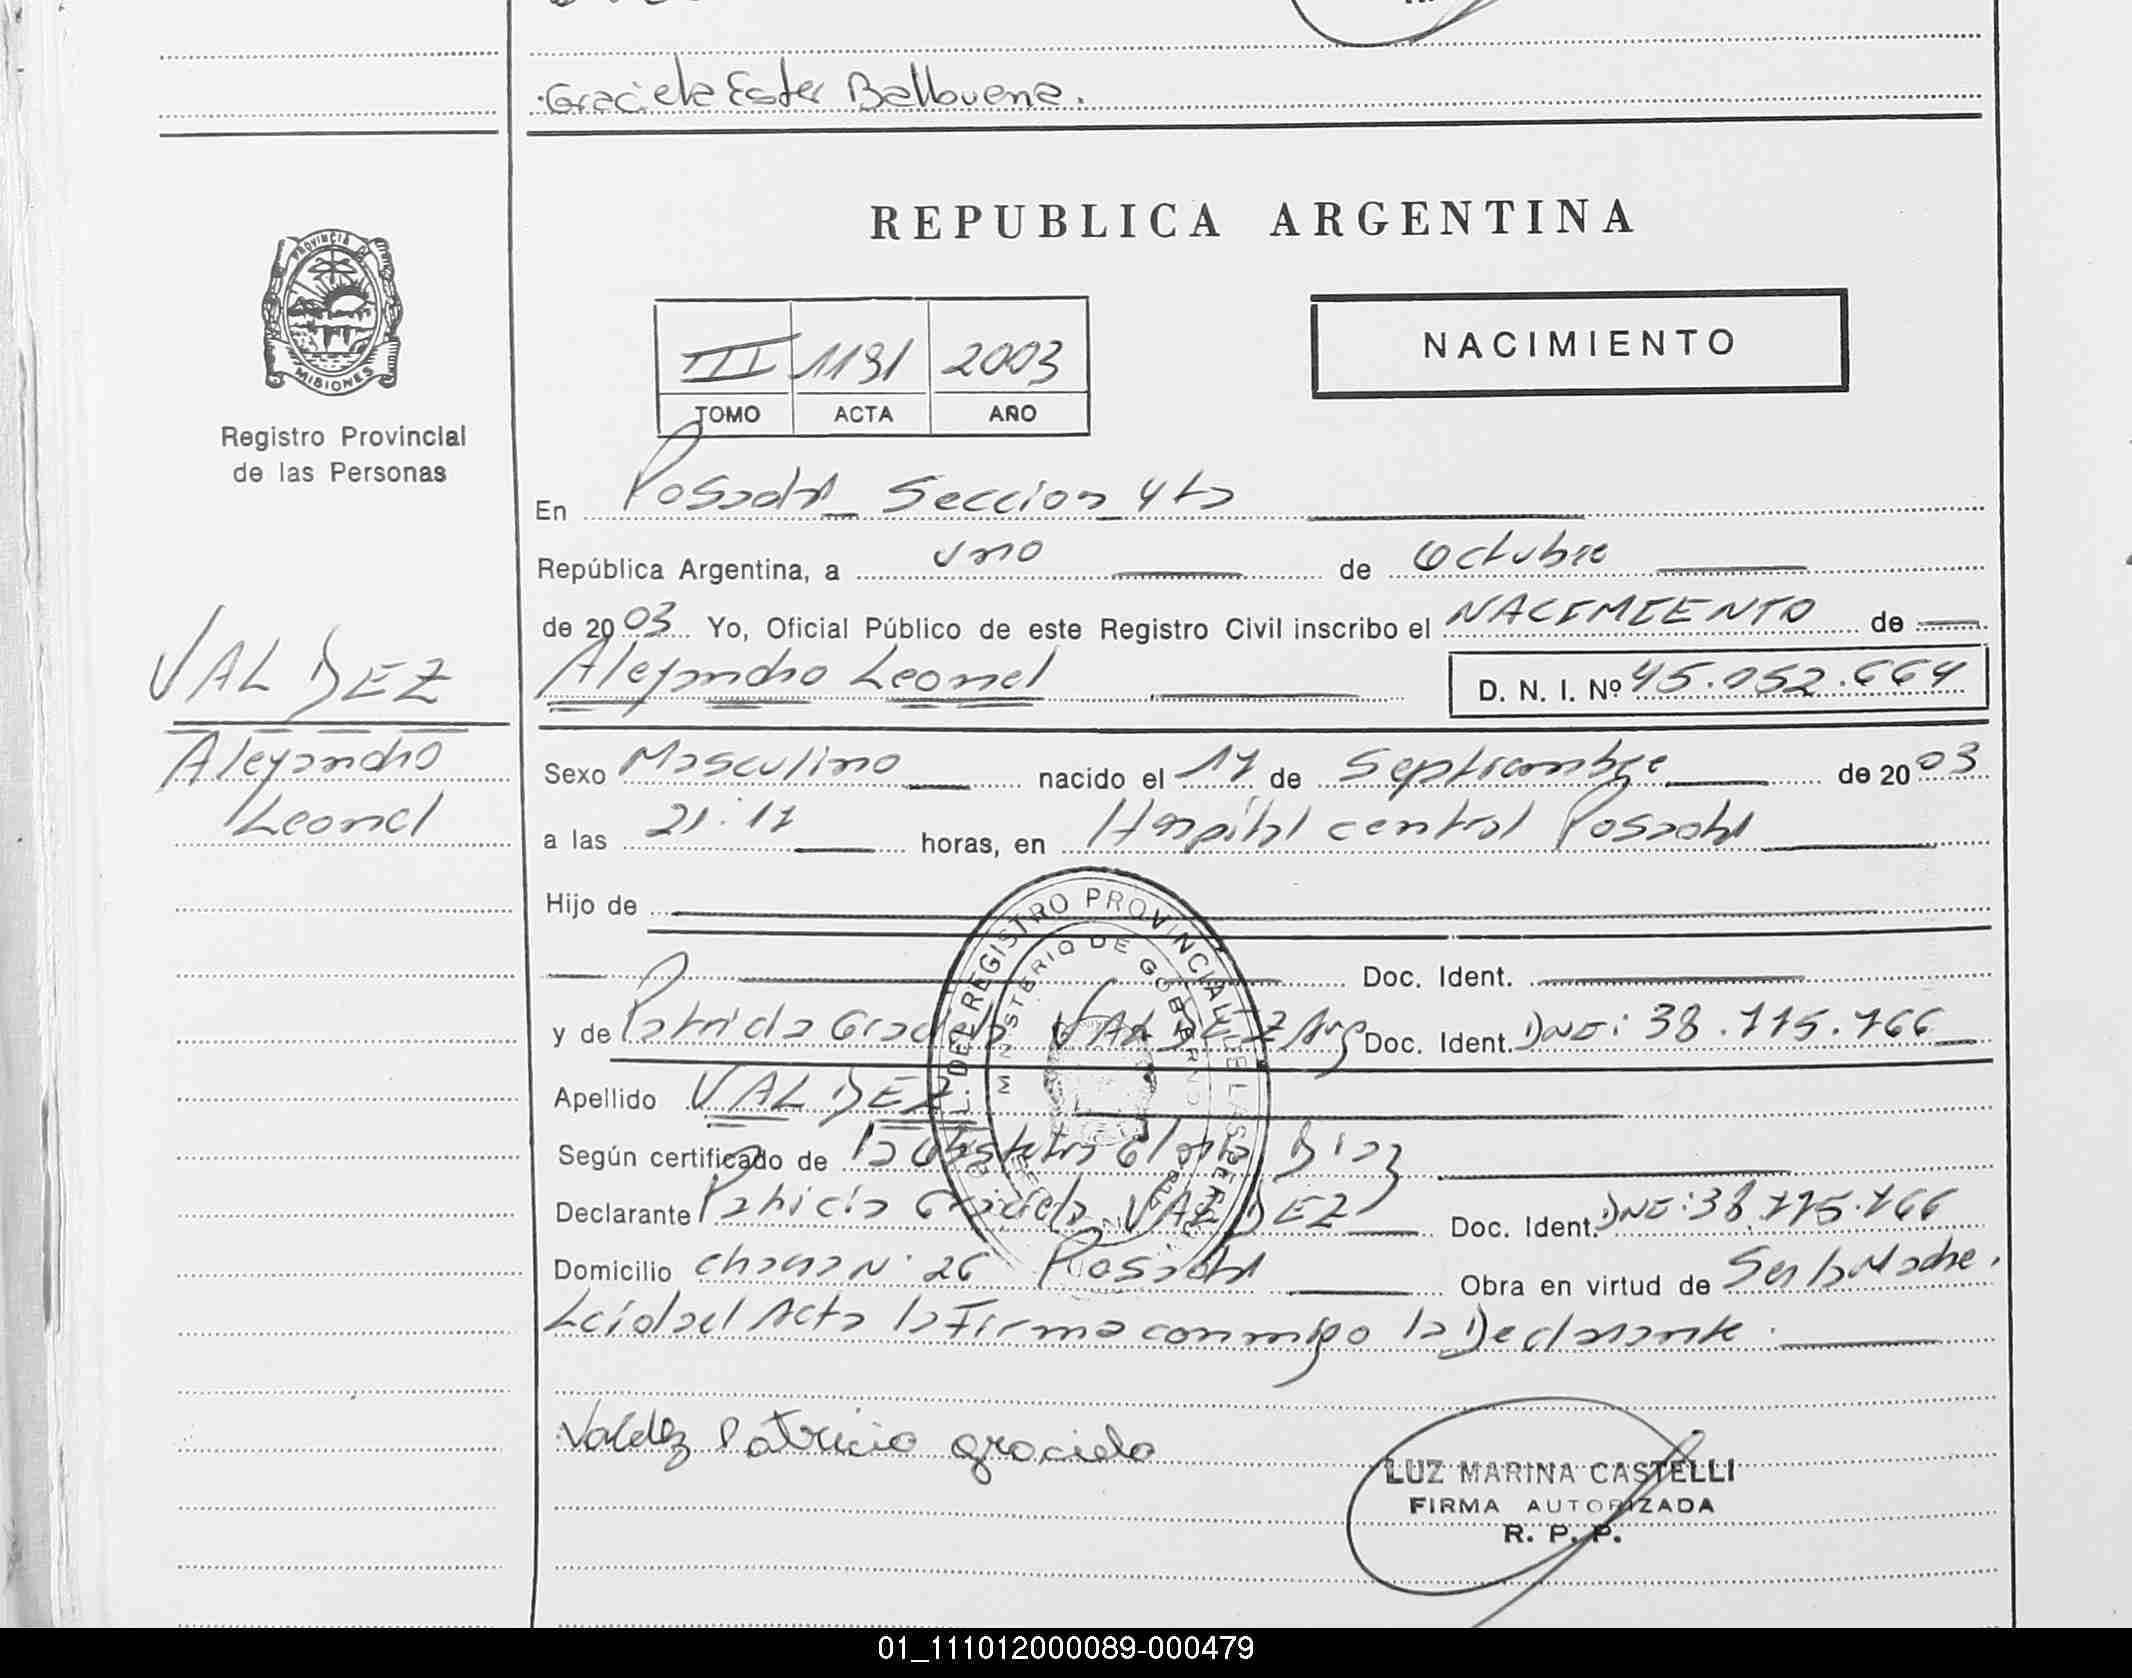 Graciela Ester Balbuena.
PROVINCIA DE
MISIONES
Registro Provincial
de las Personas
REPUBLICA ARGENTINA
NACIMIENTO
III 1191 2003
TOMO ACTA AÑO
En Posadas Seccion 4ta
República Argentina, a uno de Octubre
de 2003 Yo, Oficial Público de este Registro Civil inscribo el NACIMIENTO de
VALDEZ
Alejandro Leonel D. N. I. Nº 45.052.664
Alejandro
Leonel
Sexo Masculino nacido el 17 de Septiembre de 2003
a las 21:17 horas, en Hospital central Posadas
Hijo de
Doc. Ident.
y de Patricia Graciela VALDEZ Arg Doc. Ident. DNI: 38.775.766
Apellido VALDEZ
Según certificado de la Obstetra Gloria Diaz
Declarante Patricia Graciela VALDEZ Doc. Ident. DNI: 38.775.766
Domicilio chacra Nº 26 Posadas Obra en virtud de Ser la Madre.
Leida el Acta la Firma conmigo la Declarante.
Valdez Patricia graciela
LUZ MARINA CASTELLI
FIRMA AUTORIZADA
R. P. P.
DEL REGISTRO PROVINCIAL DE LAS PER
MINISTERIO DE GOBIERNO
01_111012000089-000479